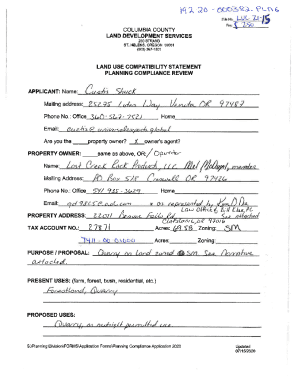 192 20 - 000382 - PLNG
COLUMBIA COUNTY
LAND DEVELOPMENT SERVICES
230 STRAND
ST. HELENS, OREGON 97051
File No. LUC 21-15
Fee $ 250
LAND USE COMPATIBILITY STATEMENT
PLANNING COMPLIANCE REVIEW
APPLICANT: Name: Curtis Shuck
Mailing address: 25295 Luther Way Veneta OR 97487
Phone No.: Office 360-567-7521 Home
Email:
Are you the property owner? X owner's agent?
PROPERTY OWNER: same as above, OR: / Operator
Name: Lost Creek Rock Products, LLC, member
Mailing Address: PO Box 518 Creswell OR 97426
Phone No.: Office 541 935-3629 Home
Email: * as represented by
Law Office
PROPERTY ADDRESS: 22011 Beaver Falls Rd See attached
Clatskanie, OR 97016
TAX ACCOUNT NO.: 27871 Acres: 69.58 Zoning: SM
Acres: Zoning:
PURPOSE / PROPOSAL: Quarry on land zoned SM See Narrative
attached
PRESENT USES: (farm, forest, bush, residential, etc.)
Forestland, Quarry
PROPOSED USES:
Quarry, an outright permitted use
S:\Planning Division\FORMS\Application Forms\Planning Compliance Application 2020
Updated